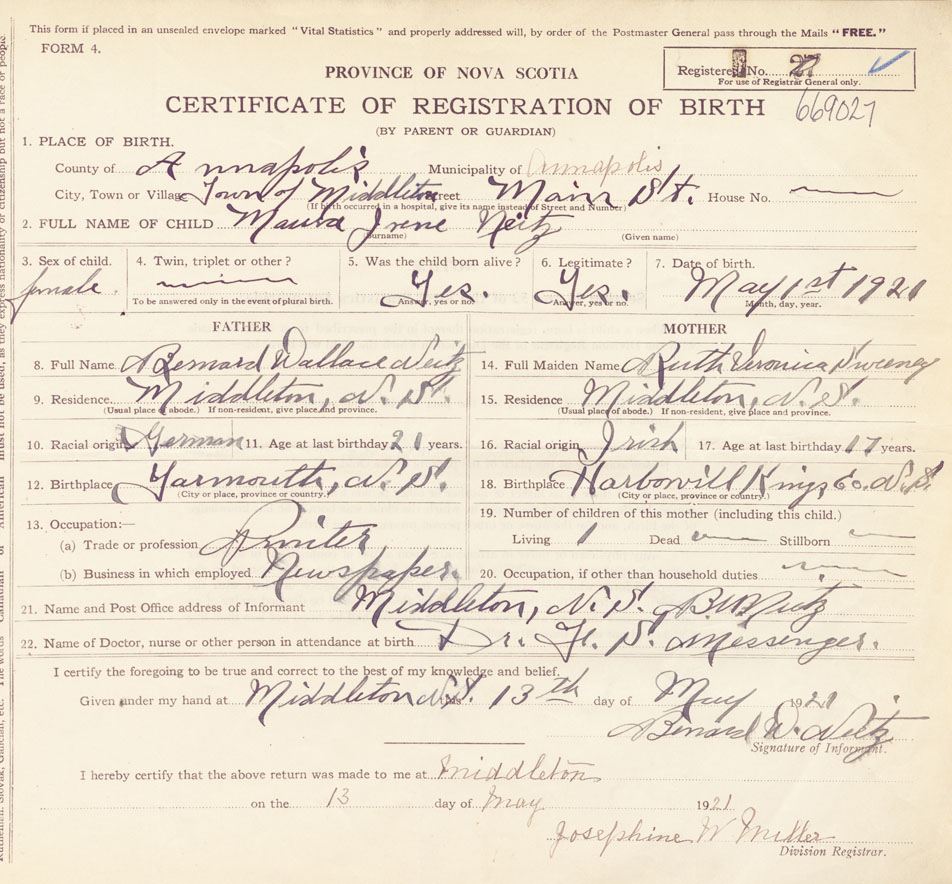 This form if placed in an unsealed envelope marked "Vital Statistics" and properly addressed will, by order of the Postmaster General pass through the Mails "FREE."
FORM 4.
Registered No. 27
For use of Registrar General only.
PROVINCE OF NOVA SCOTIA
CERTIFICATE OF REGISTRATION OF BIRTH 669027
(BY PARENT OR GUARDIAN)
1. PLACE OF BIRTH.
County of Annapolis Municipality of Annapolis
City, Town or Village Town of Middleton Street Main St. House No.
(If birth occurred in a hospital, give its name instead of Street and Number)
2. FULL NAME OF CHILD Maura Irene Neitz
(Surname) (Given name)
3. Sex of child. 4. Twin, triplet or other? 5. Was the child born alive? 6. Legitimate? 7. Date of birth.
female Yes. Yes. May 1st 1921
To be answered only in the event of plural birth. Answer, yes or no. Answer, yes or no. Month, day, year.
FATHER MOTHER
8. Full Name Bernard Wallace Neitz 14. Full Maiden Name Ruth Veronica Sweeney
9. Residence Middleton, N.S. 15. Residence Middleton, N.S.
(Usual place of abode.) If non-resident, give place and province. (Usual place of abode.) If non-resident, give place and province.
10. Racial origin German 11. Age at last birthday 21 years. 16. Racial origin Irish 17. Age at last birthday 17 years.
12. Birthplace Yarmouth, N.S. 18. Birthplace Harborvill Kings Co. N.S.
(City or place, province or country.) (City or place, province or country.)
13. Occupation:— 19. Number of children of this mother (including this child.)
(a) Trade or profession Printer Living 1 Dead Stillborn
(b) Business in which employed Newspaper. 20. Occupation, if other than household duties
21. Name and Post Office address of Informant Middleton, N.S. B.W. Neitz
22. Name of Doctor, nurse or other person in attendance at birth Dr. H. S. Messenger.
I certify the foregoing to be true and correct to the best of my knowledge and belief.
Given under my hand at Middleton N.S. 13th day of May 1921
Bernard W. Neitz
Signature of Informant.
I hereby certify that the above return was made to me at Middleton
on the 13 day of May 1921
Josephine W Miller
Division Registrar.